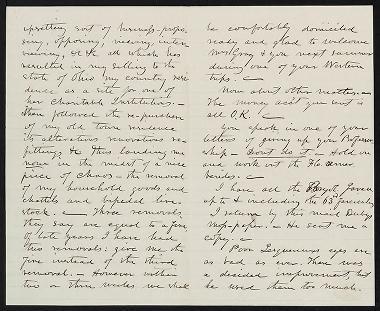 upsetting sort of business - propo-
sing, opposing, viewing, inter
viewing, &c &c all which has
resulted in my selling to the
State of Ohio my country resi
dence as a site for one of
her Charitable Institutions. -
Then followed the re-purchase
of my old town residence
its alterations renovations re-
fitting &c thus landing me
now in the midst of a nice
piece of chaos - the removal
of my household goods and
chattels and bipedal live
stock. - Three removals
they say are equal to a fire
of late years I have had
two removals: give me the
fire instead of the third
removal. - However within
two or three weeks we shall
be comfortably domiciled
ready and glad to welcome
Mrs Gray & you next summer
during one of your Western
trips. -
Now about other matters. -
The money acct you sent is
all O.K. -
You speak in one of your
letters of giving up your Professor
ship - Don't do it - Hold on
and work out the Flo.
Series. -
I have all the
up to & including the 63d fasciculus
I return by this mail Duby's
- He sent me a
copy. -
Poor Lesquereux eyes are
as bad as ever. There was
a decided improvement but
he used them too much.